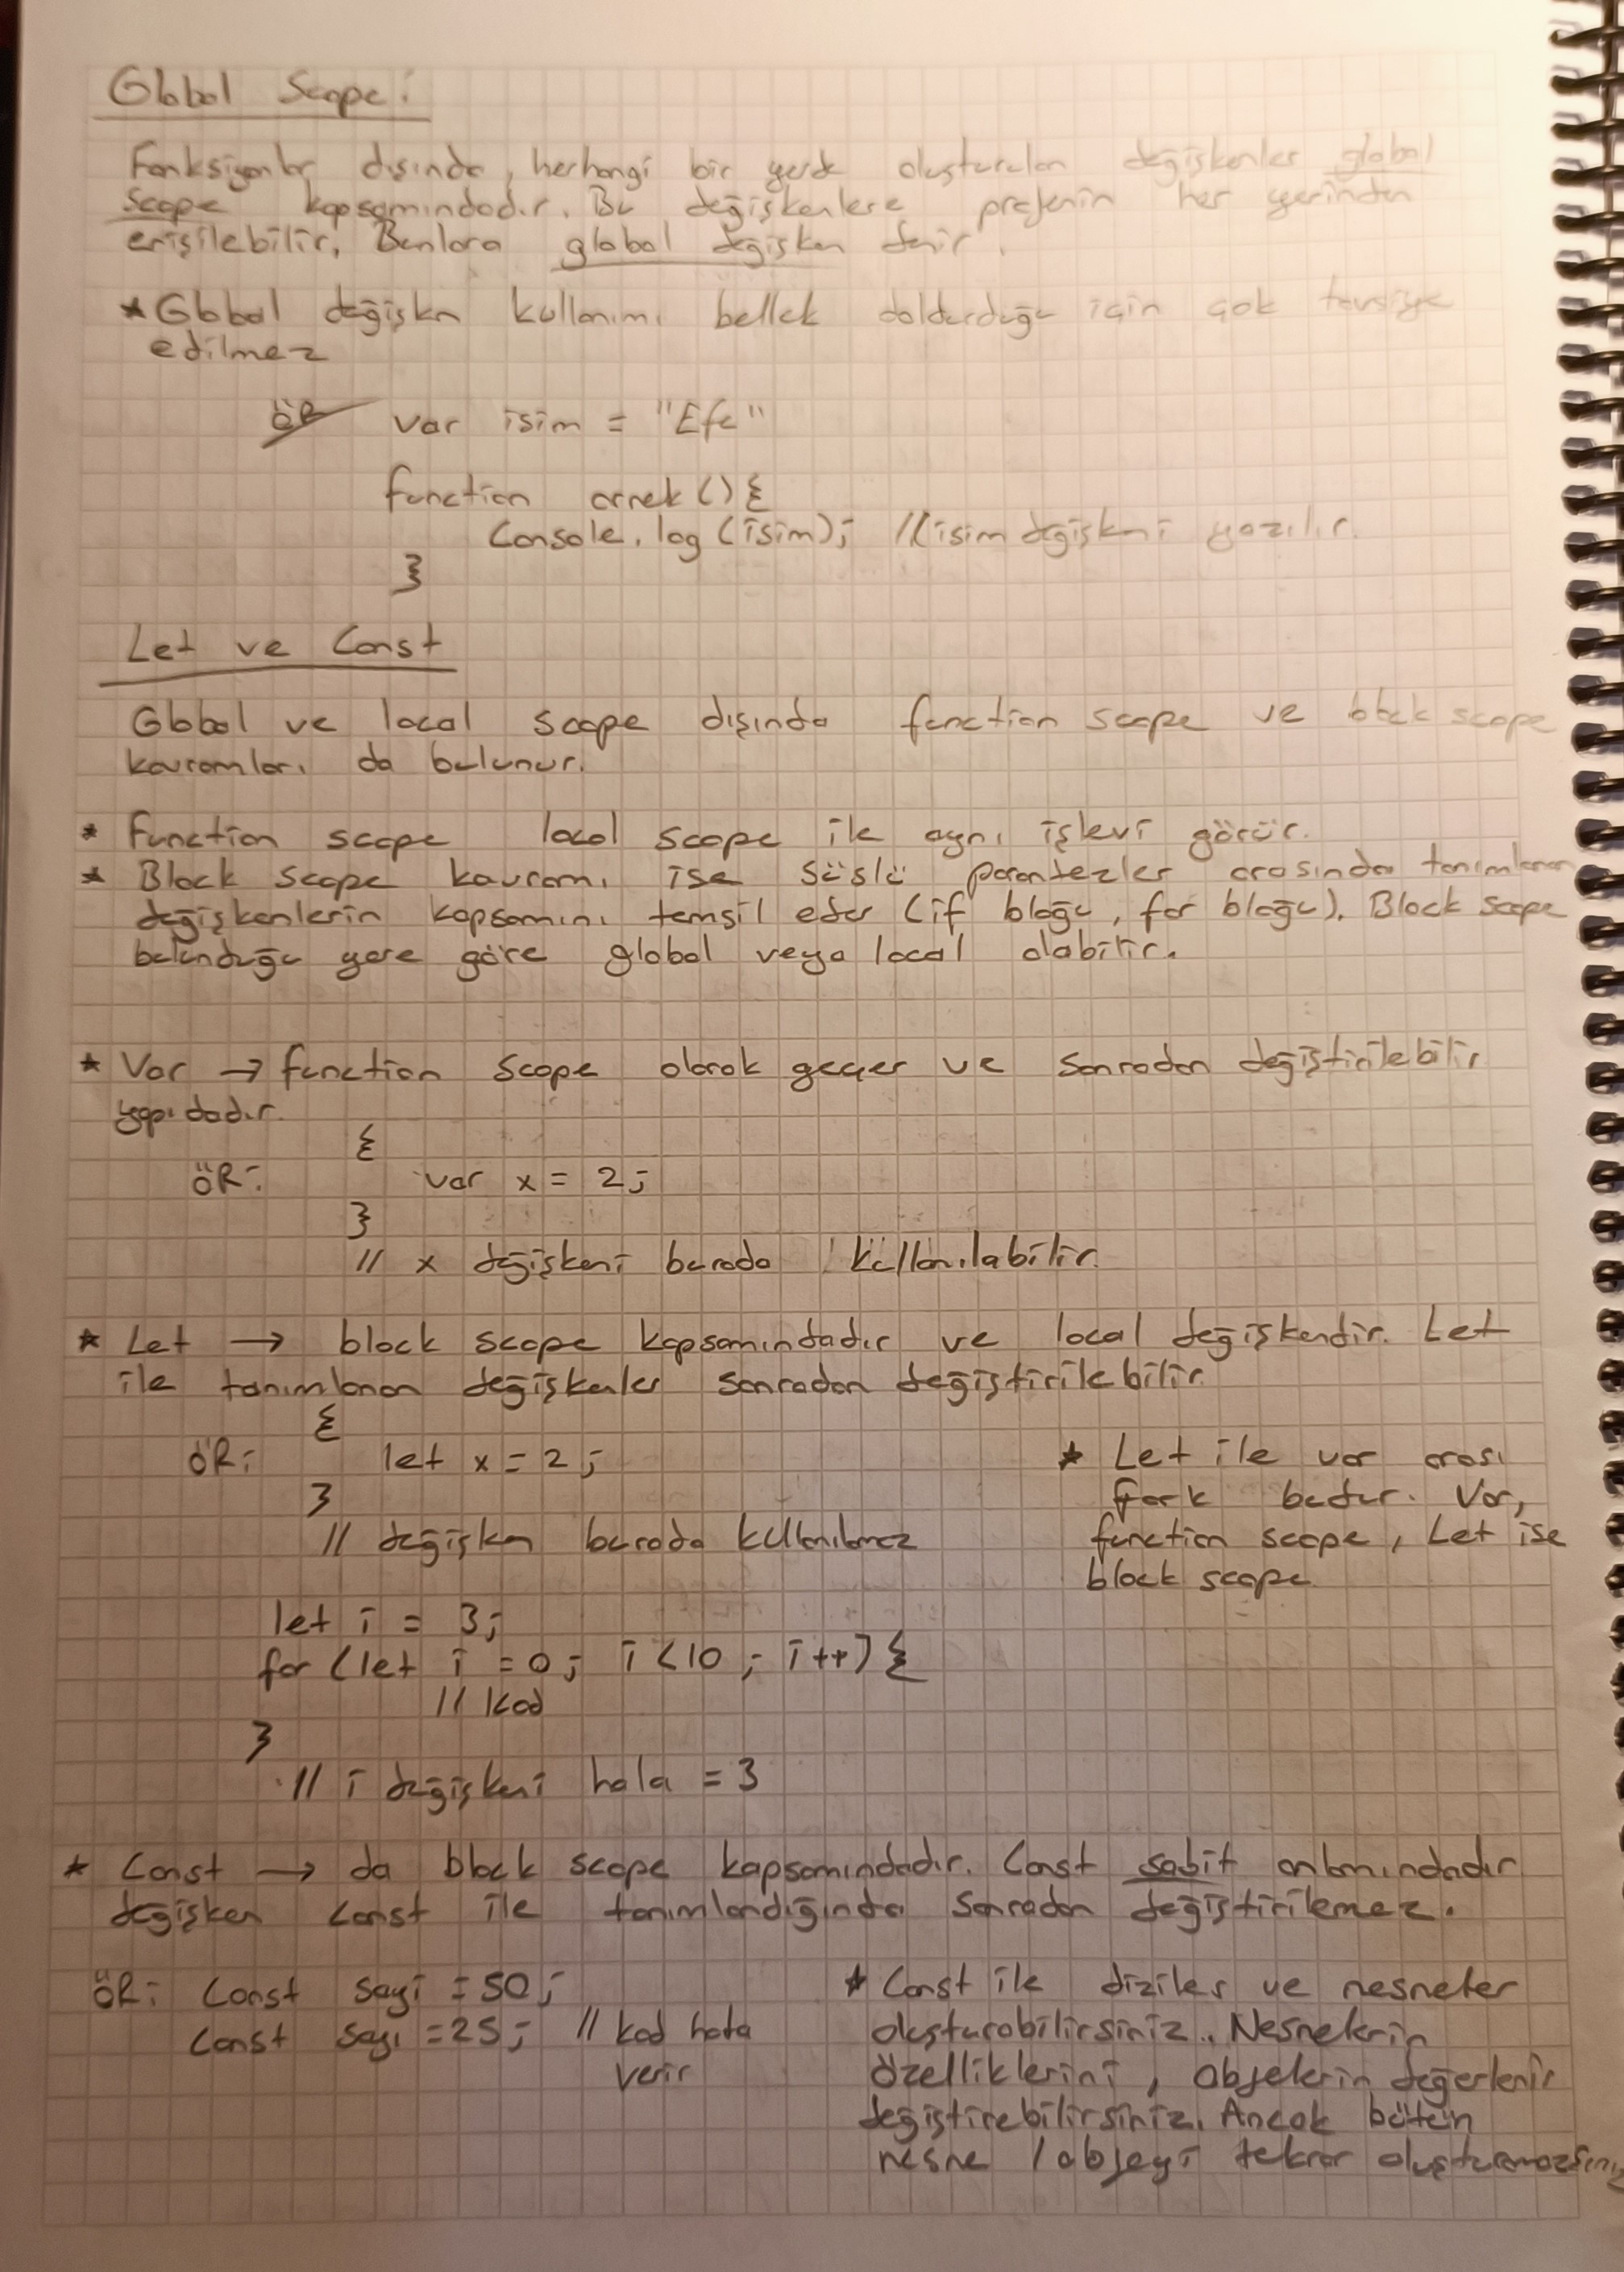 Global Scope:
Fonksiyonlar dışında, herhangi bir yerde oluşturulan değişkenler global
scope kapsamındadır. Bu değişkenlere projenin her yerinden
erişilebilir. Bunlara global değişken denir.
* Global değişken kullanımı bellek doldurduğu için çok tavsiye
edilmez
ÖR var isim = "Efe"
function ornek () {
Console.log (isim); // isim değişkeni yazılır.
}
Let ve Const
Global ve local scope dışında function scope ve block scope
kavramları da bulunur.
* Function scope local scope ile aynı işlevi görür.
* Block scope kavramı ise süslü parantezler arasında tanımlanan
değişkenlerin kapsamını temsil eder (if bloğu, for bloğu). Block scope
bulunduğu yere göre global veya local olabilir.
* Var → function scope olarak geçer ve sonradan değiştirilebilir
yapıdadır.
{
ÖR: var x = 2;
}
// x değişkeni burada kullanılabilir.
* Let → block scope kapsamındadır ve local değişkendir. Let
ile tanımlanan değişkenler sonradan değiştirilebilir.
{
ÖR: let x = 2;
}
// değişken burada kullanılmaz
* Let ile var arası
fark budur. Var,
function scope, Let ise
block scope
let i = 3;
for (let i = 0; i < 10; i++) {
// kod
}
// i değişkeni hala = 3
* Const → da block scope kapsamındadır. Const sabit anlamındadır
değişken const ile tanımlandığında sonradan değiştirilemez.
ÖR: Const sayi = 50;
Const sayı = 25; // kod hata
verir
* Const ile diziler ve nesneler
oluşturabilirsiniz.. Nesnelerin
özelliklerini, objelerin değerlerini
değiştirebilirsiniz. Ancak bütün
nesne / objeyi tekrar oluşturamazsınız